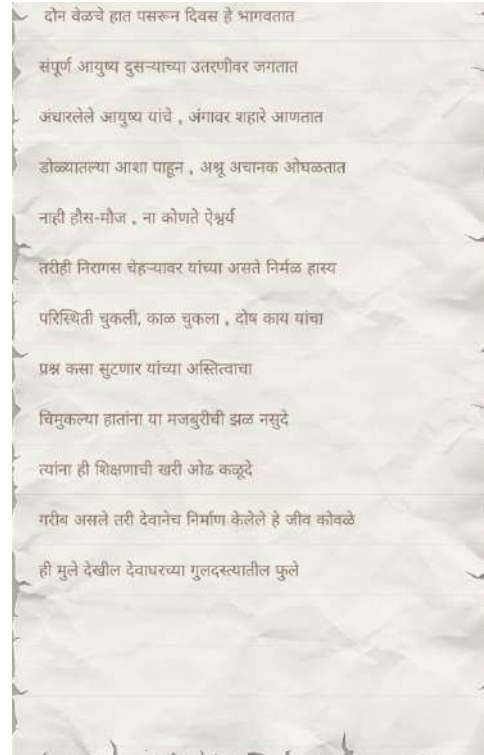 दोन वेळचे हात पसरून दिवस हे भागवतात
संपूर्ण आयुष्य दुसऱ्याच्या उतरणीवर जगतात
अंधारलेले आयुष्य यांचे , अंगावर शहारे आणतात
डोळ्यातल्या आशा पाहून , अश्रू अचानक ओघळतात
नाही हौस-मौज , ना कोणते ऐश्वर्य
तरीही निरागस चेहऱ्यावर यांच्या असते निर्मळ हास्य
परिस्थिती चुकली, काळ चुकला , दोष काय यांचा
प्रश्न कसा सुटणार यांच्या अस्तित्वाचा
चिमुकल्या हातांना या मजबुरीची झळ नसुदे
त्यांना ही शिक्षणाची खरी ओढ कळूदे
गरीब असले तरी देवानेच निर्माण केलेले हे जीव कोवळे
ही मुले देखील देवाघरच्या गुलदस्त्यातील फुले